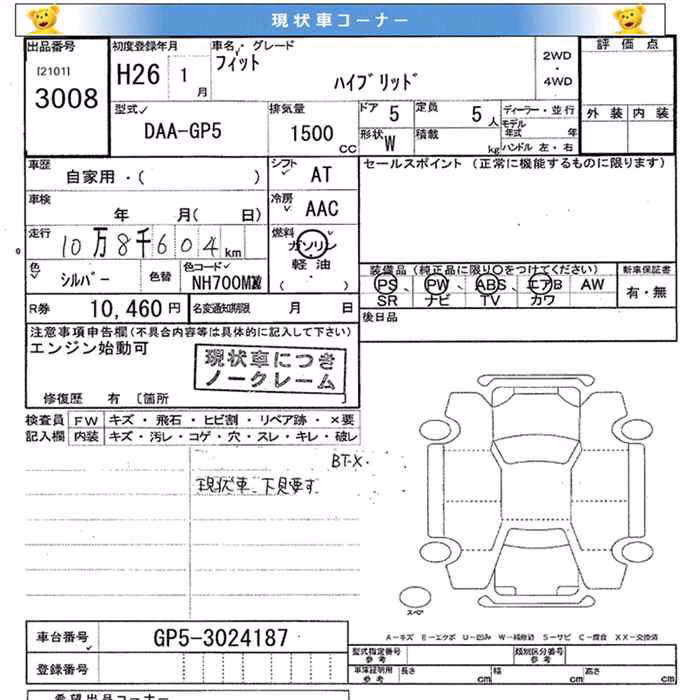 現状車コーナー
出品番号
[2101]
3008
初度登録年月
H26 1月
車名・グレード
フィット
ハイブリッド
2WD
・
4WD
評価点
外装 内装
型式
DAA-GP5
排気量
1500 CC
ドア 5
定員 5人
形状 W
積載 kg
ディーラー・並行
モデル年式 年
ハンドル 左・右
車歴
自家用・( )
シフト AT
セールスポイント (正常に機能するものに限ります)
車検
年 月( 日)
冷房 AAC
走行
10万8千604km
燃料
ガソリン
軽油
( )
色 シルバー 色替
色コード
NH700M
装備品 (純正品に限り○をつけてください)
PS、PW、ABS、エアB AW
SR ナビ TV カワ
新車保証書
有・無
R券 10,460円
名変通知期限 月 日
後日品
注意事項申告欄(不具合内容等は具体的に記入して下さい)
エンジン始動可
現状車につき
ノークレーム
修復歴 有 [箇所 ]
検査員
記入欄
FW キズ・飛石・ヒビ割・リペア跡・×要
内装 キズ・汚レ・コゲ・穴・スレ・キレ・破レ
BT-X.
現状車、下見要す
スペア
A-キズ E-エクボ U-凹み W-補修跡 S-サビ C-腐食 XX-交換済
車台番号 GP5-3024187
登録番号
型式指定番号
参考
類別区分番号
参考
車庫証明用
参考
長さ cm 幅 cm 高さ cm
希望出品コーナー